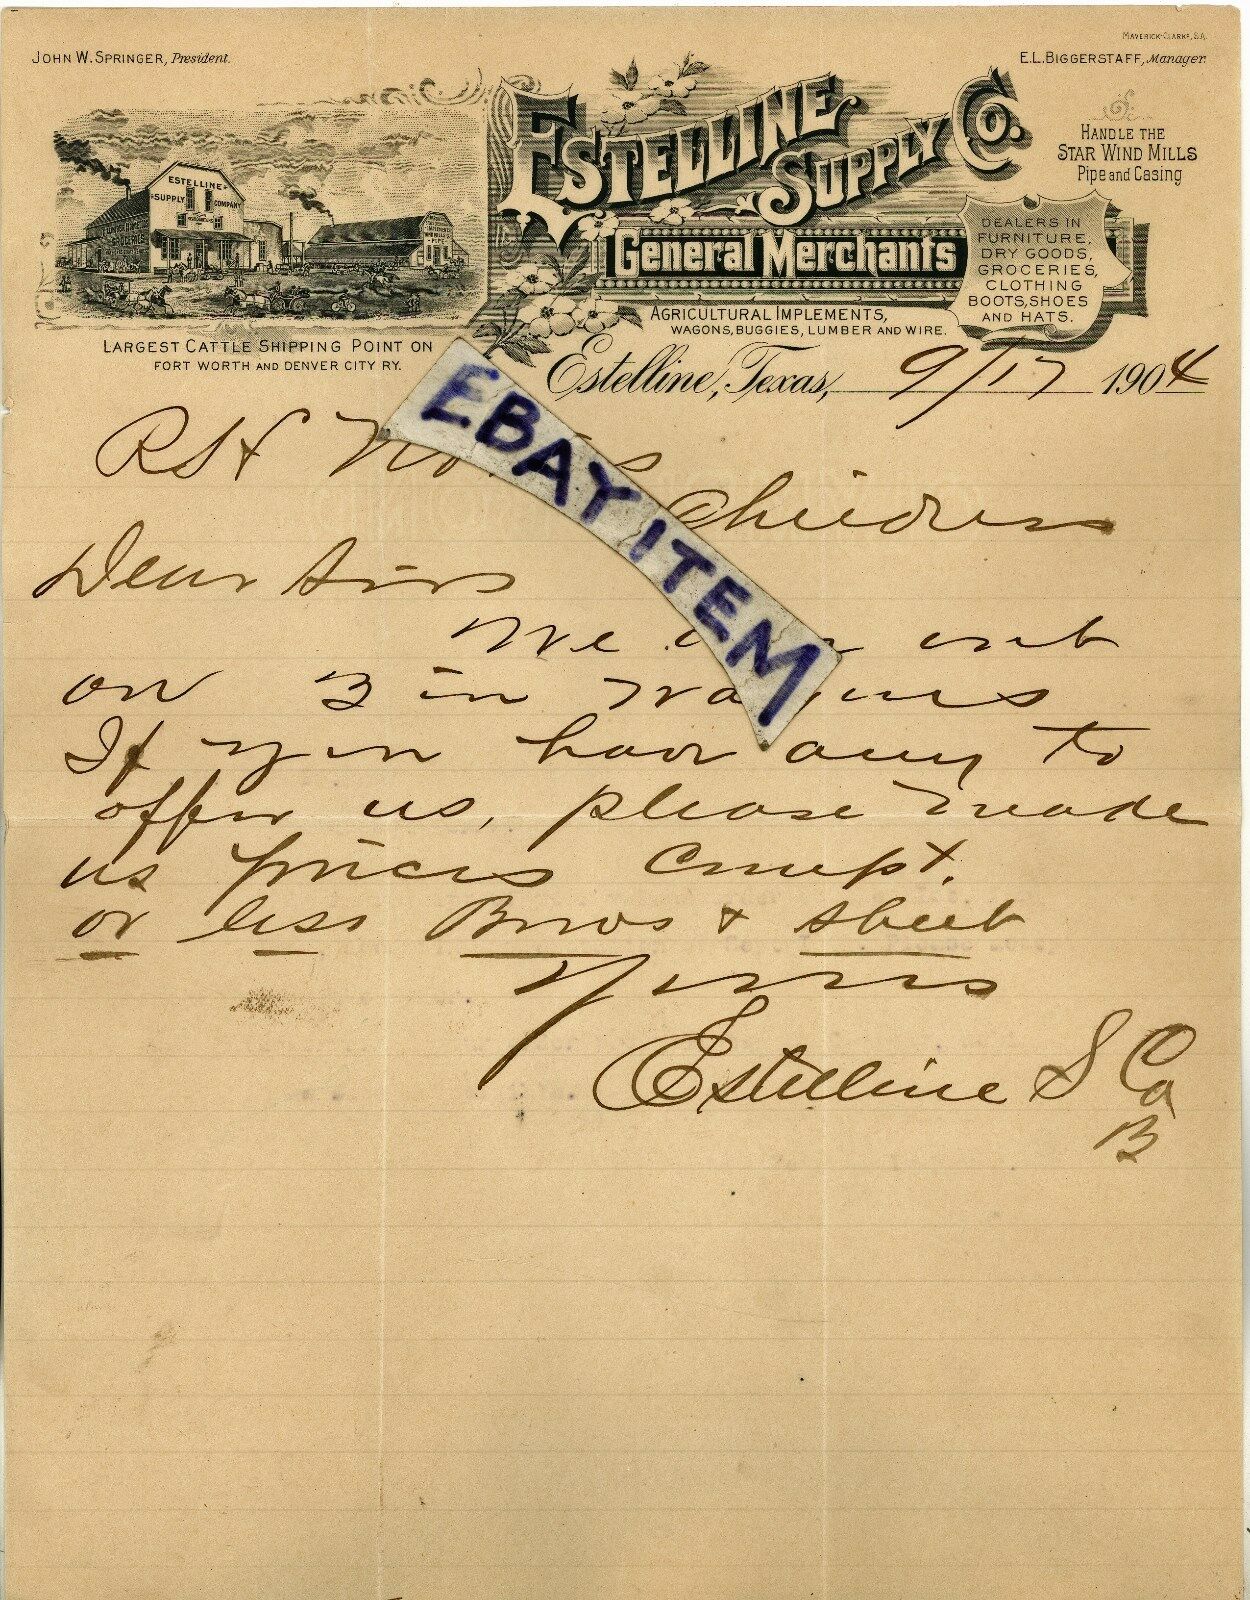 MAVERICK-CLARKE, S.A.
JOHN W. SPRINGER, President.
E.L. BIGGERSTAFF, Manager.
ESTELLINE SUPPLY CO.
HANDLE THE
STAR WIND MILLS
Pipe and Casing
ESTELLINE
SUPPLY COMPANY
GROCERIES
General Merchants
DEALERS IN
FURNITURE,
DRY GOODS,
GROCERIES,
CLOTHING
BOOTS, SHOES
AND HATS.
AGRICULTURAL IMPLEMENTS,
WAGONS, BUGGIES, LUMBER AND WIRE.
LARGEST CATTLE SHIPPING POINT ON
FORT WORTH AND DENVER CITY RY.
Estelline, Texas, 9/17 1904
EBAY ITEM
Childress
Dear Sirs
We out
on 3 in
If you have any to
offer us, please made
us prices
or less Bows & sheet
Yours
Estelline S Co
B